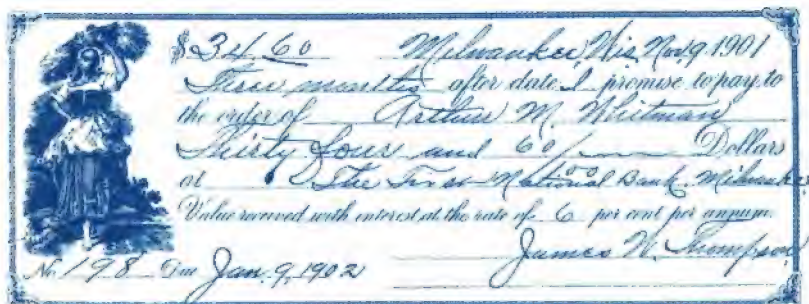 $34.60 Milwaukee, Wis. Nov. 9, 1901
Three months after date I promise to pay to
the order of Arthur M. Whitman
Thirty four and 60/100 Dollars
at The First National Bank, Milwaukee
Value received with interest at the rate of 6 per cent per annum.
James W. Thompson
No. 198 Due Jan. 9, 1902